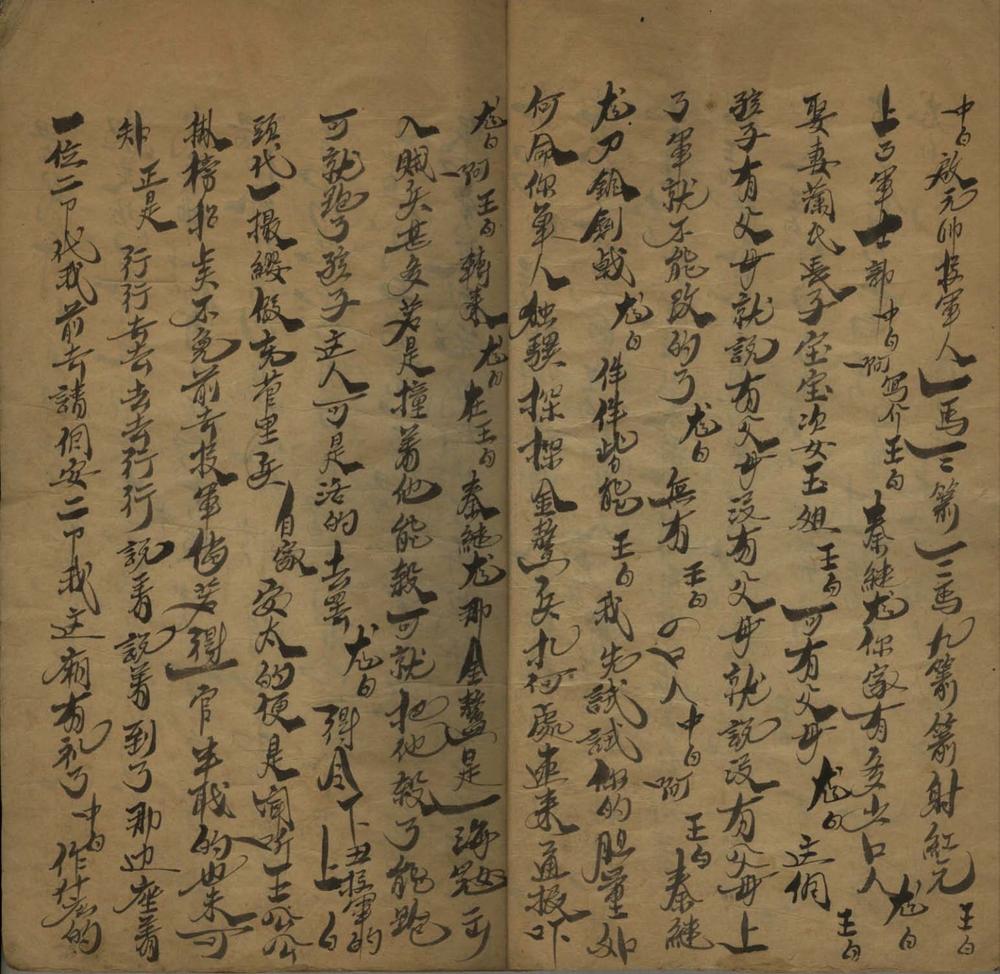 中白 啟元帥投軍人 一馬三箭 三馬九箭 箭射紅元 王白
上了軍士部 中白 啊 写介 王白 秦継尤你家有多少口人 尤白
娶妻蕭氏長子宝宝次女玉姐 王白 可有父母 尤白 這個 王白
孩子有父母就説有父母没有父母就説没有父母上
了軍就不能改的了 尤白 無有 王白 口人 中白 啊 王白 秦継
尤刀鎗劍戟 尤白 件件皆能 王白 我先試試你的胆量如
何命你单人独騎探探金鰲兵扎何處速来通报吓
尤白 啊 王白 轉来 尤白 在 王白 秦継尤那金鰲是海宼
入賊兵甚多若是撞着他能殺可就把他殺了能跑
可就跑了孩子這人可是活的去罢 尤白 得令 下 丑投軍的上白
頭代一撮纓假充营里兵 自家 安太的便是聞听王公公
掛榜招兵不免前去投軍倘若得一官半职的也未可
知 正是 行行去去去去行行 説着説着到了那边座着
一位二下代我前去請個安二下我這廂有礼了 中白 作什麽的